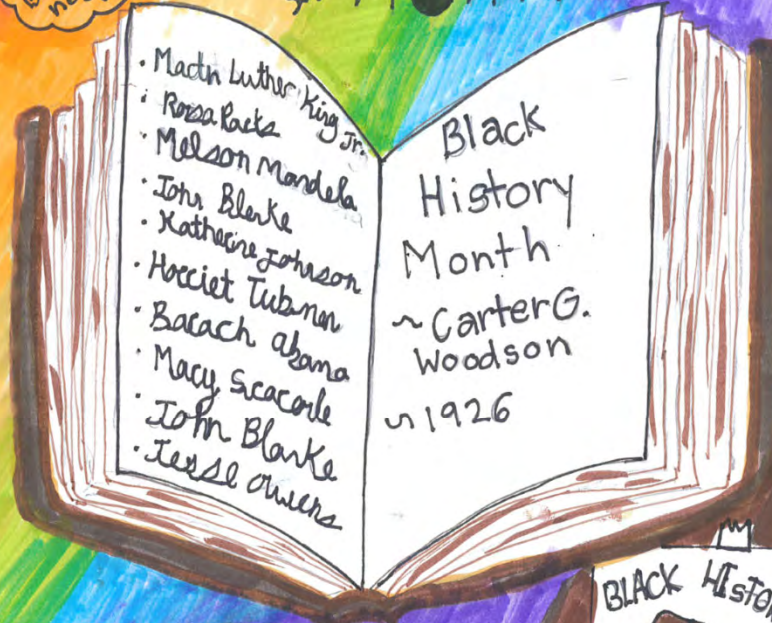 · Martn Luther King Jr.
· Rosa Parks
· Melson Mandela
· John Blanke
· Katherine Johnson
· Harriet Tubman
· Barach obama
· Macy Seacole
· John Blanke
· Jesse owens
Black
History
Month
~ Carter G.
Woodson
~ 1926
BLACK HISTO